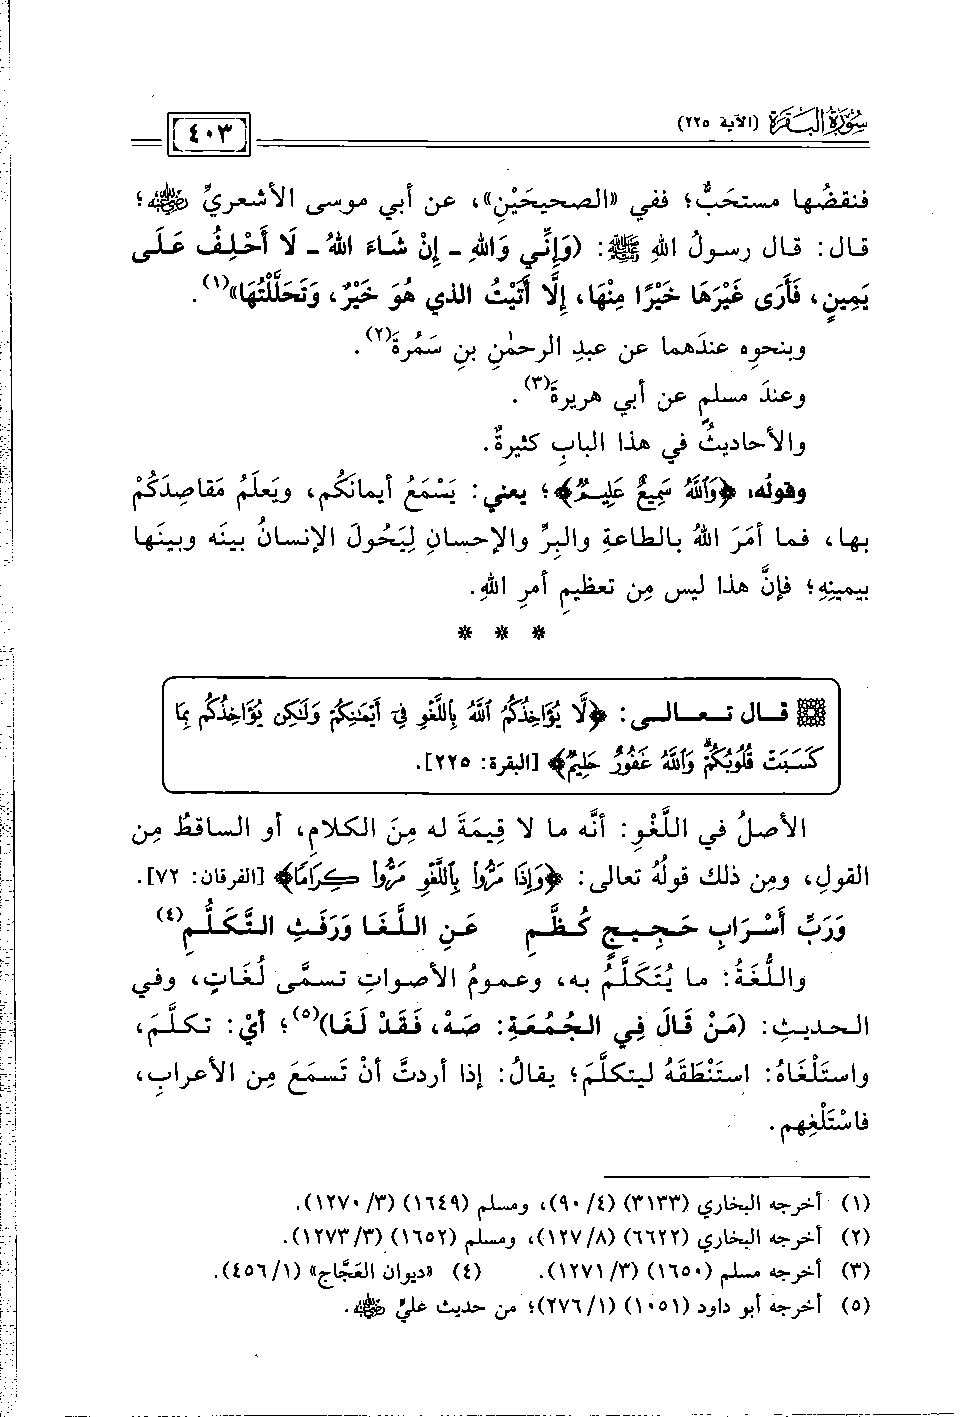 سُورَةُ البَقَرَة (الآية ٢٢٥)
٤٠٣
فنقضُها مستحَبٌّ؛ ففي «الصحيحَيْنِ»، عن أبي موسى الأشعريِّ رضي الله عنه؛
قال: قال رسولُ اللهِ ﷺ: (وَإِنِّي وَاللهِ ـ إِنْ شَاءَ اللهُ ـ لَا أَحْلِفُ عَلَى
يَمِينٍ، فَأَرَى غَيْرَهَا خَيْرًا مِنْهَا، إِلَّا أَتَيْتُ الذي هُوَ خَيْرٌ، وَتَحَلَّلْتُهَا»(١).
وبنحوِه عندَهما عن عبدِ الرحمٰنِ بنِ سَمُرةَ(٢).
وعندَ مسلمٍ عن أبي هريرةَ(٣).
والأحاديثُ في هذا البابِ كثيرةٌ.
وقولُه: ﴿وَٱللَّهُ سَمِيعٌ عَلِيمٌ﴾؛ يعني: يَسْمَعُ أيمانَكُم، ويَعلَمُ مَقاصِدَكُمْ
بها، فما أمَرَ اللهُ بالطاعةِ والبِرِّ والإحسانِ لِيَحُولَ الإنسانُ بينَه وبينَها
بيمينِهِ؛ فإنَّ هذا ليس مِن تعظيمِ أمرِ اللهِ.
* * *
قال تعالى: ﴿لَّا يُؤَاخِذُكُمُ ٱللَّهُ بِٱللَّغْوِ فِىٓ أَيْمَٰنِكُمْ وَلَٰكِن يُؤَاخِذُكُم بِمَا
كَسَبَتْ قُلُوبُكُمْ ۗ وَٱللَّهُ غَفُورٌ حَلِيمٌ﴾ [البقرة: ٢٢٥].
الأصلُ في اللَّغْوِ: أنَّه ما لا قِيمَةَ له مِنَ الكلامِ، أو الساقطُ مِن
القولِ، ومِن ذلك قولُهُ تعالى: ﴿وَإِذَا مَرُّوا۟ بِٱللَّغْوِ مَرُّوا۟ كِرَامًا﴾ [الفرقان: ٧٢].
وَرَبِّ أَسْرَابِ حَجِيجٍ كُظَّمِ عَنِ اللَّغَا وَرَفَثِ التَّكَلُّمِ(٤)
واللُّغَةُ: ما يُتَكلَّمُ به، وعمومُ الأصواتِ تسمَّى لُغَاتٍ، وفي
الحديثِ: (مَنْ قَالَ فِي الجُمُعَةِ: صَهْ، فَقَدْ لَغَا)(٥)؛ أيْ: تكلَّمَ،
واستَلْغَاهُ: استَنْطَقَهُ ليتكلَّمَ؛ يقالُ: إذا أردتَّ أنْ تَسمَعَ مِن الأعرابِ،
فاسْتَلْغِهِم.
(١) أخرجه البخاري (٣١٣٣) (٤/ ٩٠)، ومسلم (١٦٤٩) (٣/ ١٢٧٠).
(٢) أخرجه البخاري (٦٦٢٢) (٨/ ١٢٧)، ومسلم (١٦٥٢) (٣/ ١٢٧٣).
(٣) أخرجه مسلم (١٦٥٠) (٣/ ١٢٧١). (٤) «ديوان العَجَّاج» (١/ ٤٥٦).
(٥) أخرجه أبو داود (١٠٥١) (١/ ٢٧٦)؛ من حديث عليٍّ رضي الله عنه.